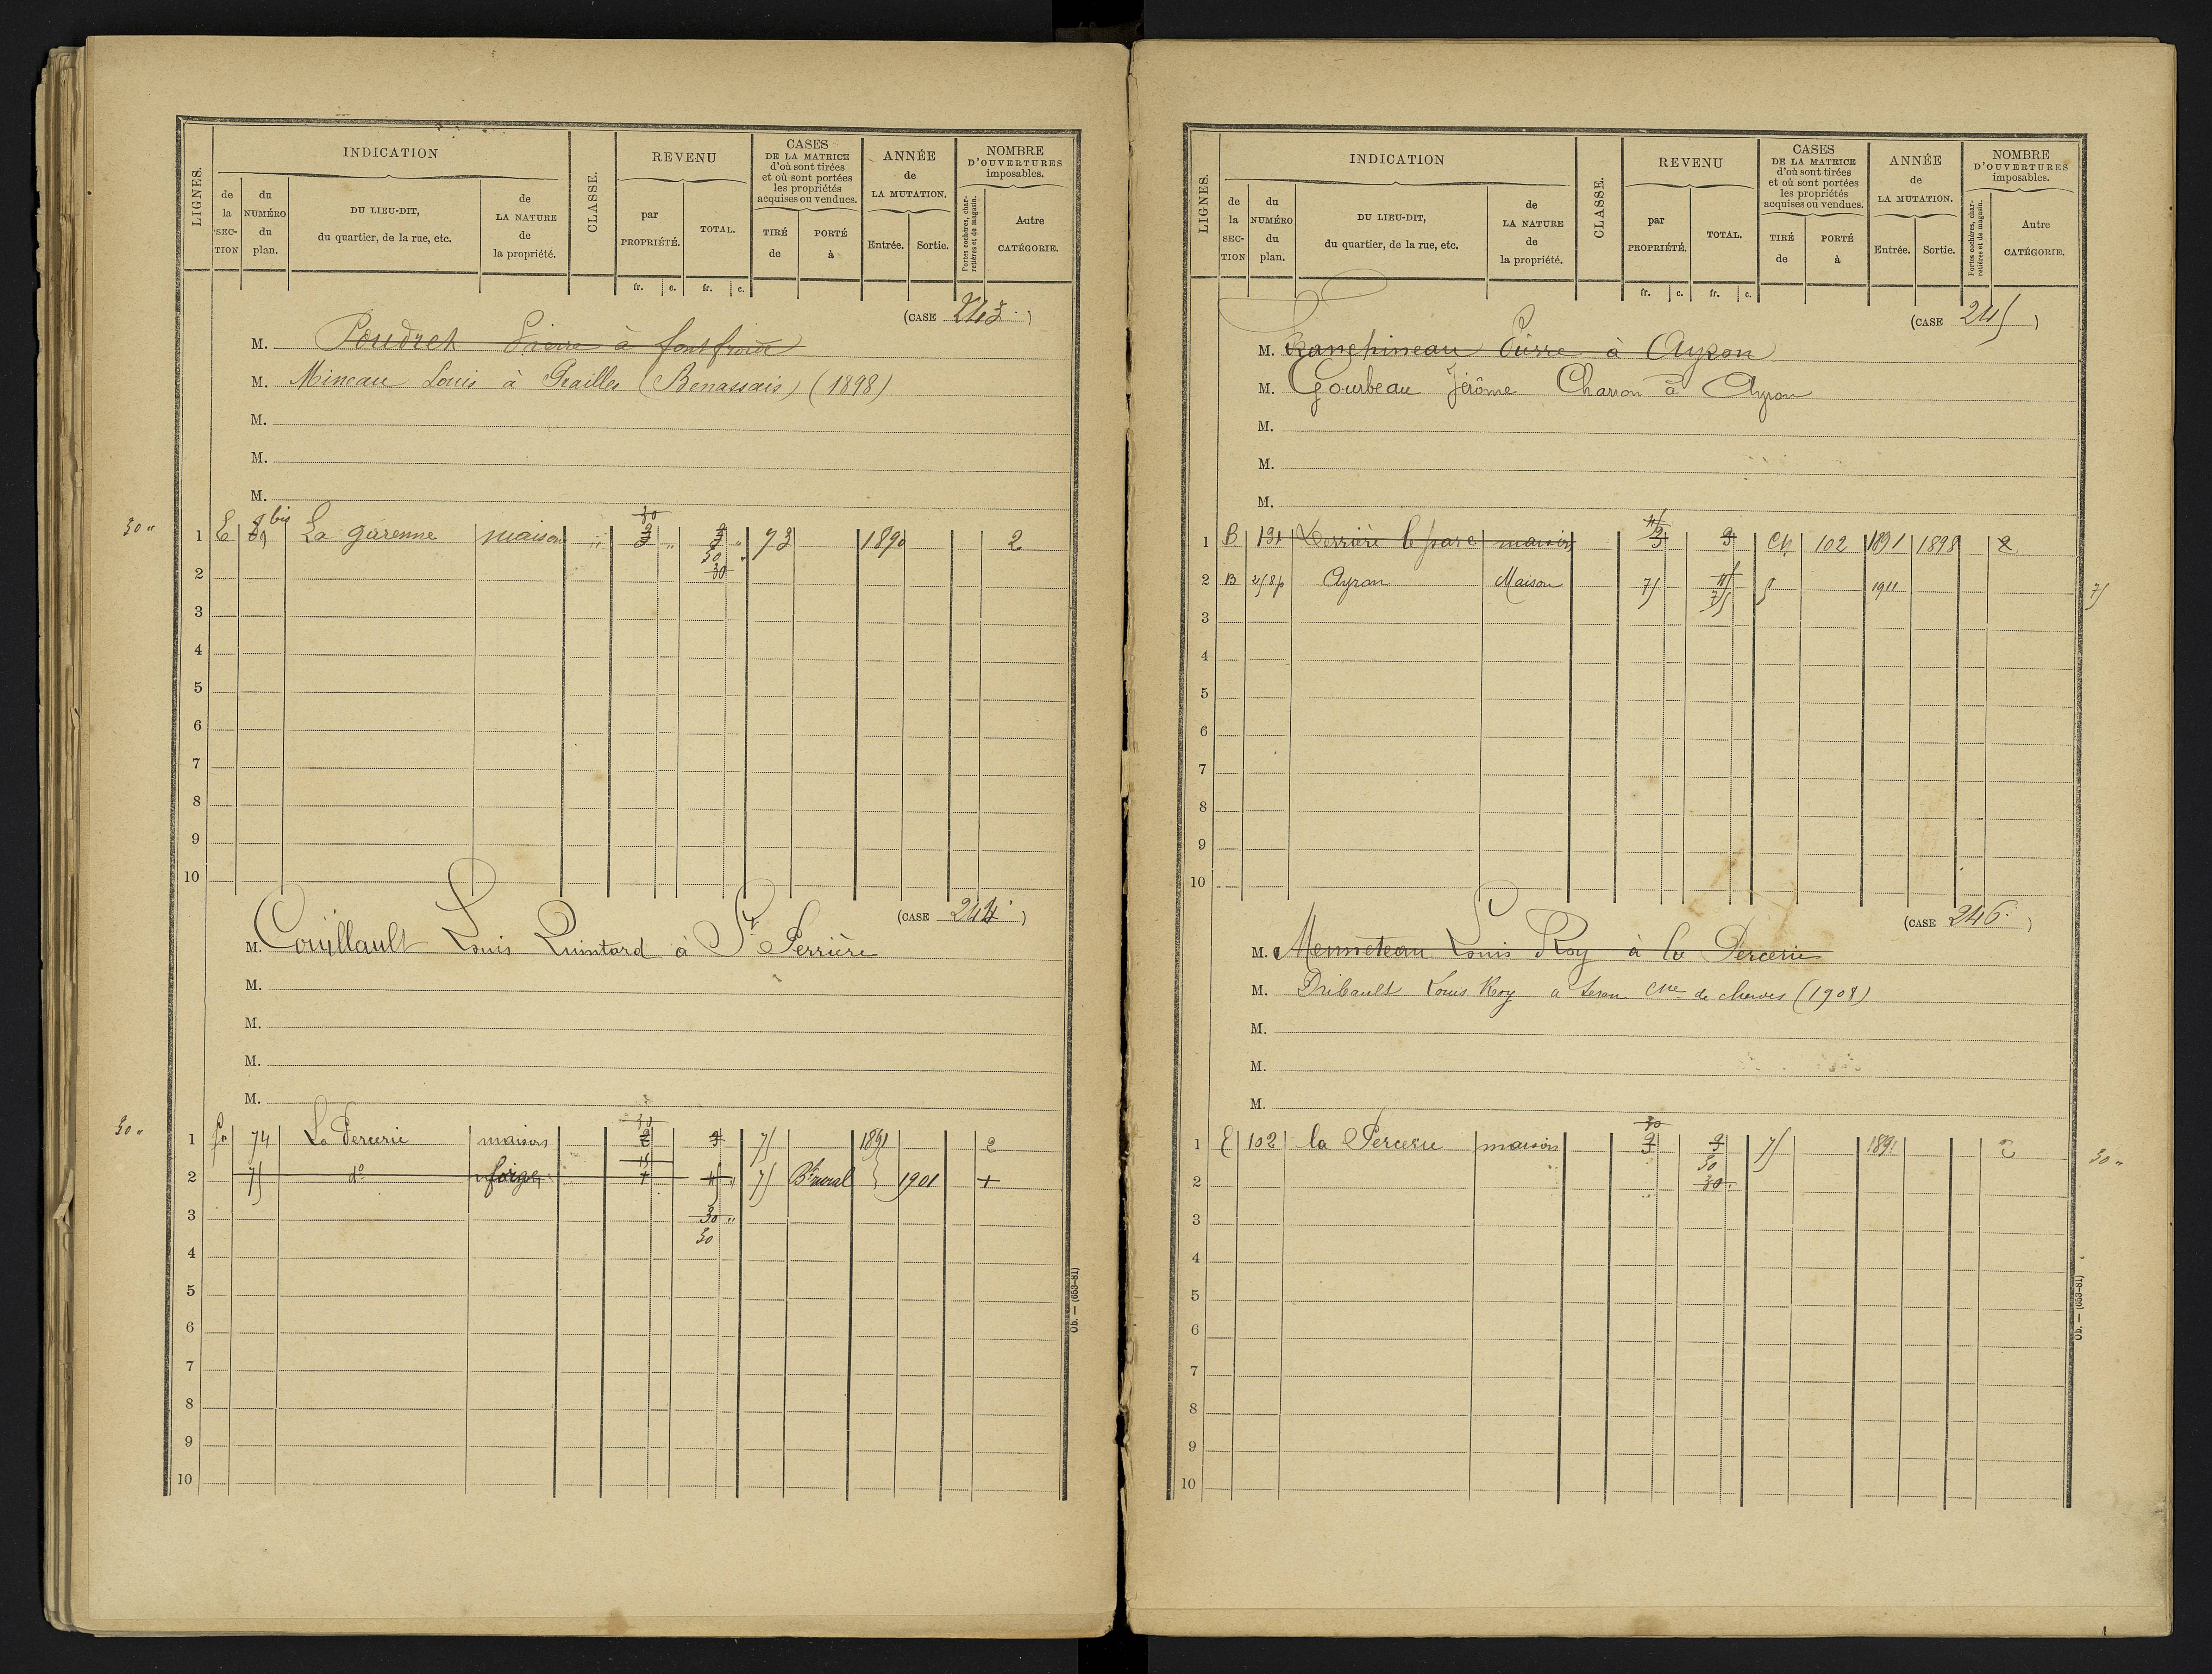 LIGNES.
INDICATION
de la SECTION
du NUMÉRO du plan.
DU LIEU-DIT, du quartier, de la rue, etc.
de LA NATURE de la propriété.
CLASSE.
REVENU
par PROPRIÉTÉ.
TOTAL.
fr. c. fr. c.
CASES DE LA MATRICE d'où sont tirées et où sont portées les propriétés acquises ou vendues.
TIRÉ de
PORTÉ à
ANNÉE de LA MUTATION.
Entrée. Sortie.
NOMBRE D'OUVERTURES imposables.
Portes cochères, charretières et de magasin.
Autre CATÉGORIE.
(CASE 243.)
M. Poudret Pierre à fontfroide
M. Mineau Louis à (Benassais) (1898)
M.
M.
M.
30 "
1 E bis La garenne maison " 30 3 " 3 " 73 1890 2
30
2 30
3
4
5
6
7
8
9
10
(CASE 244.)
M. Couillault Louis Quintard à Perrière
M.
M.
M.
M.
30 "
1 74 La Percerie maison 30 3 75 1891 2
2 75 d° forge 15 75 1901 1
3 30 "
30
4
5
6
7
8
9
10
Ob. — (653-81)
LIGNES.
INDICATION
de la SECTION
du NUMÉRO du plan.
DU LIEU-DIT, du quartier, de la rue, etc.
de LA NATURE de la propriété.
CLASSE.
REVENU
par PROPRIÉTÉ.
TOTAL.
fr. c. fr. c.
CASES DE LA MATRICE d'où sont tirées et où sont portées les propriétés acquises ou vendues.
TIRÉ de
PORTÉ à
ANNÉE de LA MUTATION.
Entrée. Sortie.
NOMBRE D'OUVERTURES imposables.
Portes cochères, charretières et de magasin.
Autre CATÉGORIE.
(CASE 245)
M. Pierre à Ayron
M. Gourbeau Jérôme Charron à Ayron
M.
M.
M.
1 B 131 Derrière le parc maison 45 3 3 102 1891 1898 2
2 B 258p Ayron Maison 75 45 5 1911
75
75
3
4
5
6
7
8
9
10
(CASE 246.)
M. Menneteau Louis Roy à la Percerie
M. Dribault Louis Roy a cne de cherves (1908)
M.
M.
M.
1 E 102 la Percerie maison 30 3 3 75 1891 2
30
30 "
2 30
3
4
5
6
7
8
9
10
Ob. — (653-81)